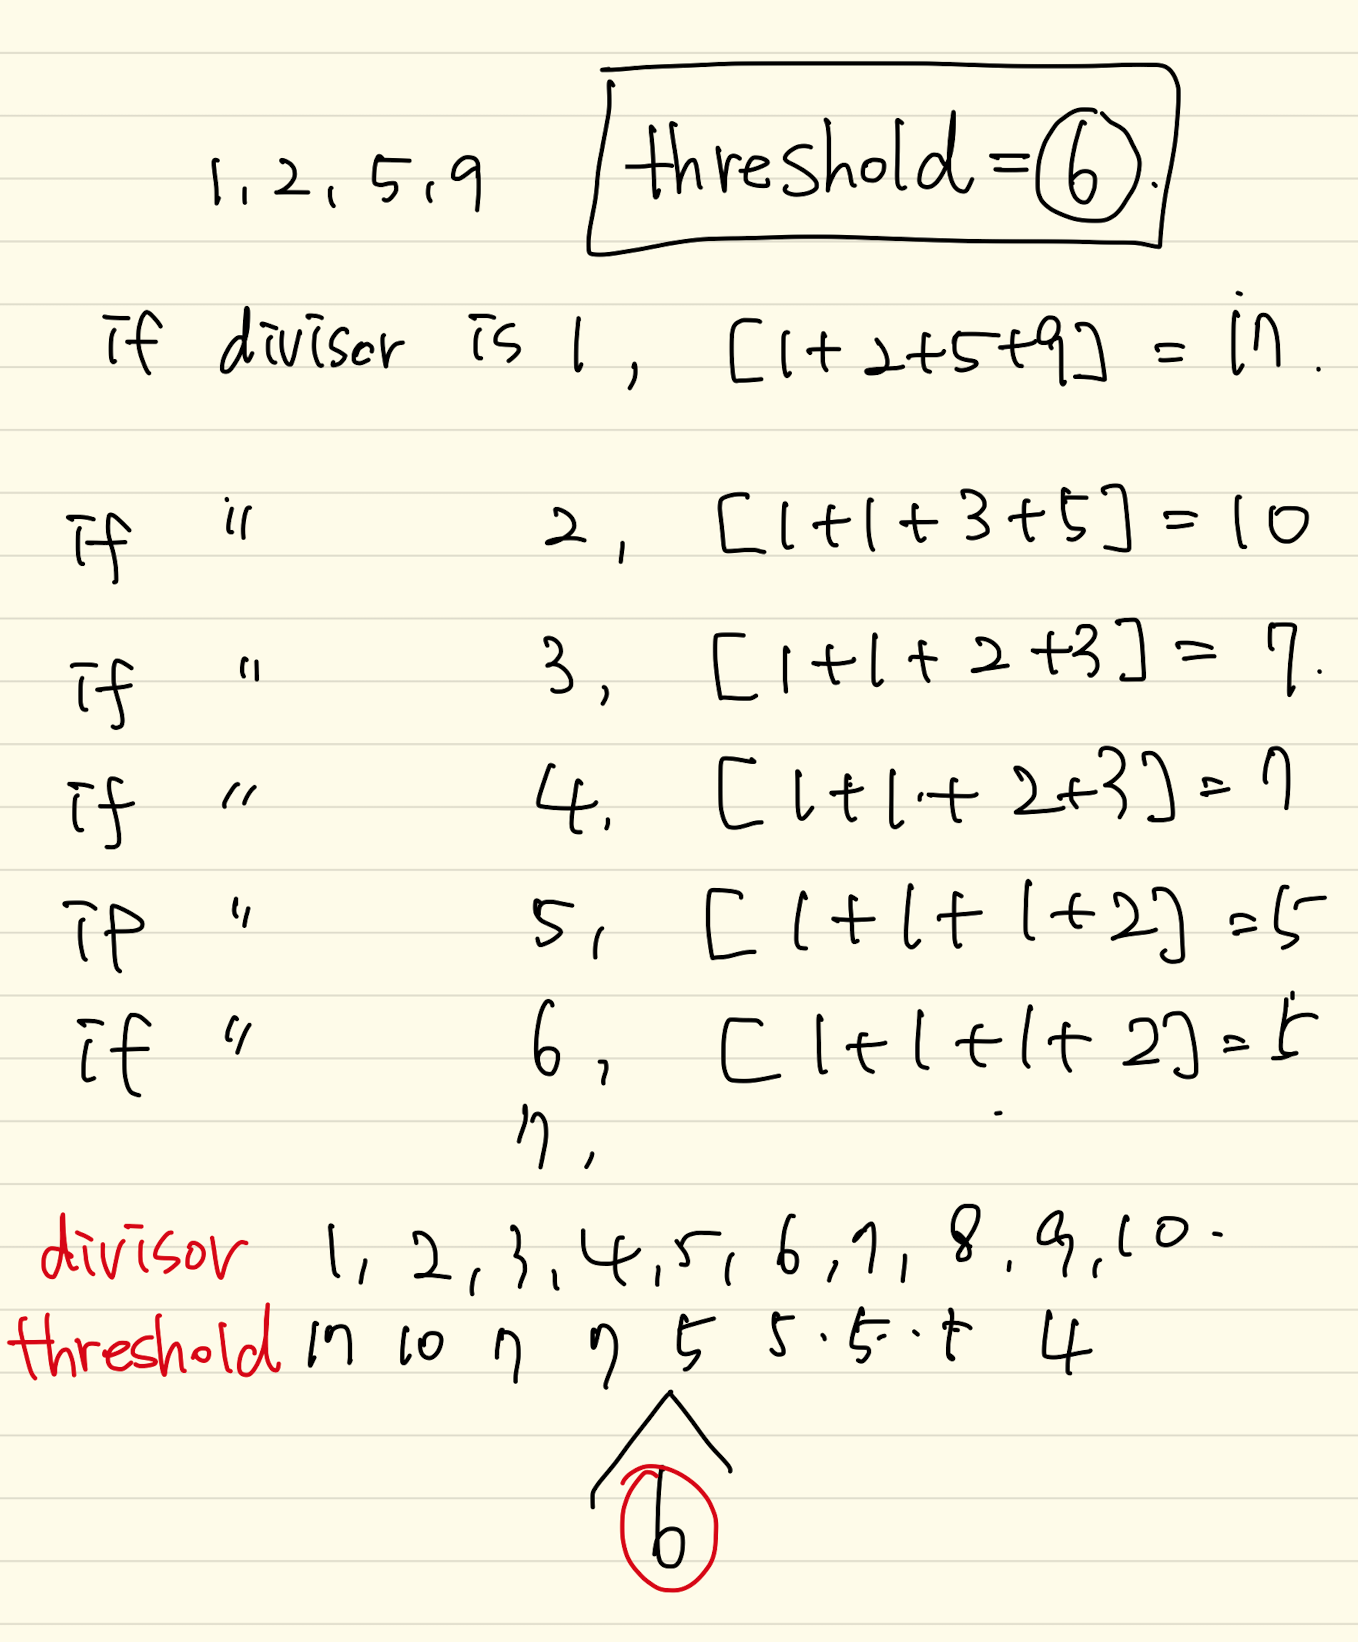 1, 2, 5, 9 threshold = 6.
if divisor is 1, [1+2+5+9] = 17.
if " 2, [1+1+3+5] = 10
if " 3, [1+1+2+3] = 7.
if " 4, [1+1+2+3] = 7
if " 5, [1+1+1+2] = 5
if " 6, [1+1+1+2] = 5
7,
divisor 1, 2, 3, 4, 5, 6, 7, 8, 9, 10.
threshold 17 10 7 7 5 5 . 5 . 5 4
6